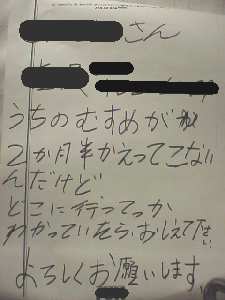 さん
うちのむすめが
2か月半かえってこない
んだけど
どこに行ってっか
わかっていたら、おしえて下さい
よろしくお願いします